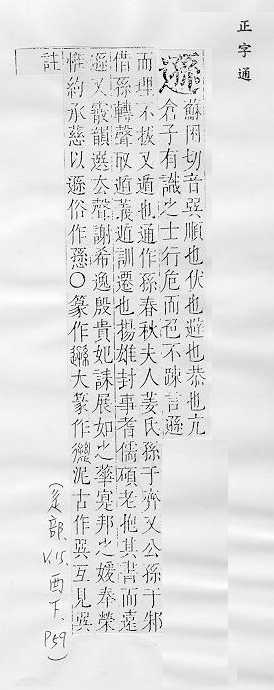 正字通
遜
蘇困切音巽順也伏也遊也恭也亢
倉子有識之士行危而色不疎言遜
而理不拔又遁也通作孫春秋夫人姜氏孫于齊又公孫于邾
借孫轉聲取遁義近訓遷也揚雄封事耆儒碩老抱其書而遠
遜又霰韻選去聲謝希逸殷貴妃誄展如之華寔邦之媛奉榮
惟約承慈以遜俗作愻〇篆作大篆作泥古作巽互見巽
註
(辵部, V.15, 酉下, P59)